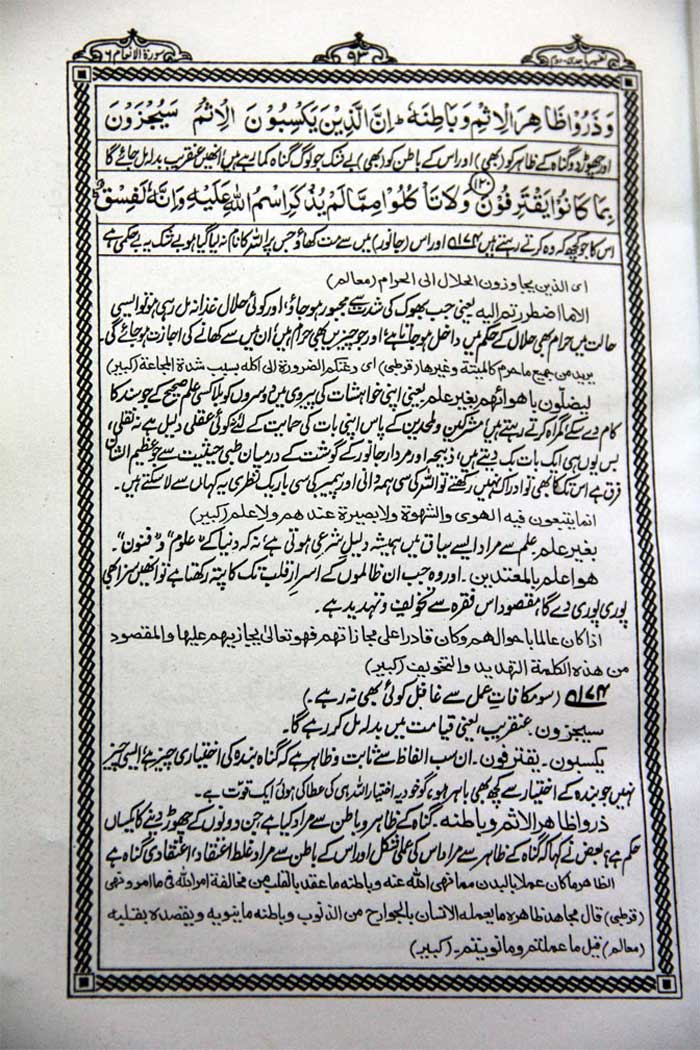 سورۃ الانعام ۶
۹۳
تفسیر ماجدی - دوم
وَذَرُوْا ظَاهِرَ الْاِثْمِ وَبَاطِنَهٗ ؕ اِنَّ الَّذِيْنَ يَكْسِبُوْنَ الْاِثْمَ سَيُجْزَوْنَ
اور چھوڑ دو گناہ کے ظاہر کو (بھی) اور اس کے باطن کو (بھی) بے شک جو لوگ گناہ کما رہے ہیں، انھیں عنقریب بدلہ مل جائے گا
بِمَا كَانُوْا يَقْتَرِفُوْنَ ﴿۱۲۰﴾ وَلَا تَاْكُلُوْا مِمَّا لَمْ يُذْكَرِ اسْمُ اللّٰهِ عَلَيْهِ وَاِنَّهٗ لَفِسْقٌ ؕ
اس کا جو کچھ کہ وہ کرتے رہتے ہیں ۱۷۴ اور اس (جانور) میں سے مت کھاؤ جس پر اللہ کا نام نہ لیا گیا ہو بے شک یہ بے حکمی ہے
ای الذین یجاوزون الحلال الی الحرام (معالم)
الا ما اضطررتم الیه یعنی جب بھوک کی شدت سے مجبور ہو جاؤ، اور کوئی حلال غذا نہ مل رہی ہو تو ایسی
حالت میں حرام بھی حلال کے حکم میں داخل ہو جاتا ہے، اور جو چیزیں بھی حرام ہیں، ان میں سے کھانے کی اجازت ہو جائے گی۔
یرید من جمیع ما حرم کالمیتة وغیرها (قرطبی) ای دعتکم الضرورة الی اکله بسبب شدة المجاعة (کبیر)
لیضلّون باهوائهم بغیر علم یعنی اپنی خواہشات کی پیروی میں دوسروں کو بلا کسی علم صحیح کے جو سند کا
کام دے سکے گمراہ کرتے رہتے ہیں، مشرکین و ملحدین کے پاس اپنی بات کی حمایت کے لئے کوئی عقلی دلیل ہے نہ نقلی،
بس یوں ہی ایک بات بک دیتے ہیں، ذبیحہ اور مردار جانور کے گوشت کے درمیان طبی حیثیت سے جو عظیم الشان
فرق ہے اس تک کا بھی تو ادراک نہیں رکھتے تو اللہ کی سی ہمہ دانی اور پیمبر کی سی باریک نظری یہ کہاں سے لا سکتے ہیں۔
انما یتبعون فیه الهوی والشهوة ولا بصیرة عندهم ولا علم (کبیر)
بغیر علم۔ علم سے مراد ایسے سیاق میں ہمیشہ دلیلِ شرعی ہوتی ہے، نہ کہ دنیا کے "علوم" و "فنون"۔
هو اعلم بالمعتدین۔ اور وہ جب ان ظالموں کے اسرارِ قلب تک کا پتہ رکھتا ہے تو انھیں سزا بھی
پوری پوری دے گا، مقصود اس فقرہ سے تخویف و تہدید ہے۔
اذا کان عالما باحوالهم وکان قادرا علی مجازاتهم فهو تعالیٰ یجازیهم علیها والمقصود
من هذه الکلمة التهدید والتخویف (کبیر)
۱۷۴ (سو مکافات عمل سے غافل کوئی بھی نہ رہے۔)
سیجزون۔ عنقریب، یعنی قیامت میں بدلہ مل کر رہے گا۔
یکسبون۔ یقترفون۔ ان سب الفاظ سے ثابت و ظاہر ہے کہ گناہ بندہ کی اختیاری چیز ہے، ایسی چیز
نہیں جو بندہ کے اختیار سے کچھ بھی باہر ہو، گو خود یہ اختیار اللہ ہی کی عطا کی ہوئی ایک قوت ہے۔
ذروا ظاهر الاثم وباطنه۔ گناہ کے ظاہر و باطن سے مراد کیا ہے جن دونوں کے چھوڑ دینے کا یکساں
حکم ہے؟ بعض نے کہا کہ گناہ کے ظاہر سے مراد اس کی عملی شکل اور اس کے باطن سے مراد غلط اعتقاد، اعتقادی گناہ ہے
الظاهر ما کان عملا بالبدن مما نهی الله عنه وباطنه ما عقد بالقلب من مخالفة امر الله فی ما امر و نهی
(قرطبی) قال مجاهد ظاهره ما یعمله الانسان بالجوارح من الذنوب وباطنه ما ینویه ویقصده بقلبه
(معالم) قیل ما عملتم وما نویتم۔ (کبیر)